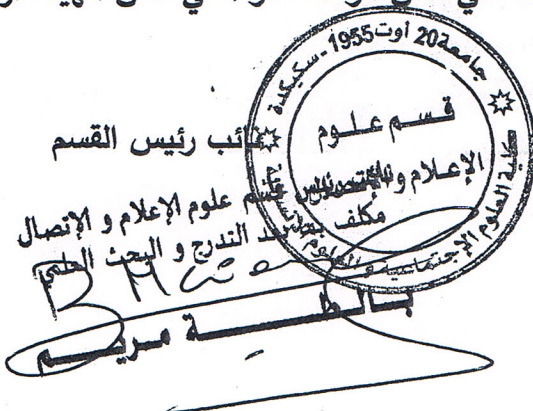 جامعة 20 أوت 1955 - سكيكدة
كلية العلوم الإجتماعية و العلوم
قسم علوم
الإعلام و الإتصال
نائب رئيس القسم
نائب رئيس قسم علوم الإعلام و الإتصال
مكلف بما بعد التدرج و البحث العلمي
بالطـــة مريـــم